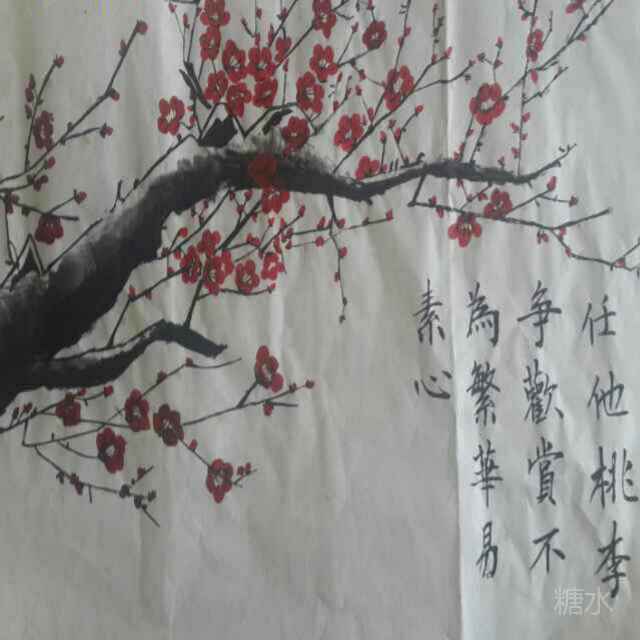 任他桃李
争歡賞不
為繁華易
素心
糖水